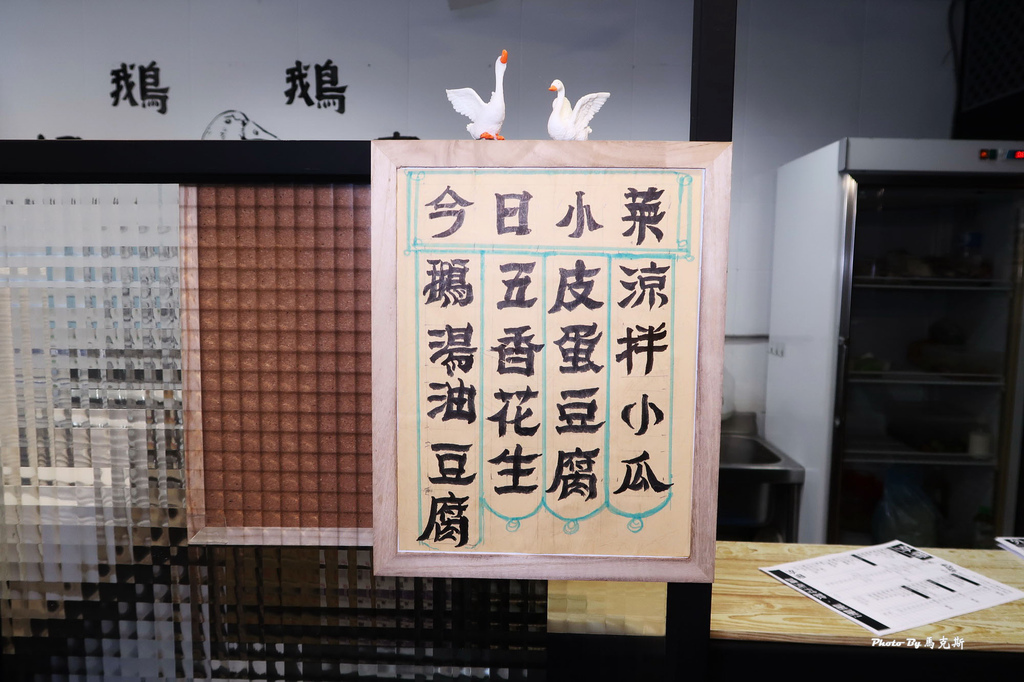 鵝 鵝
今日小菜
涼拌小瓜
皮蛋豆腐
五香花生
鵝湯油豆腐
Photo By 馬克斯